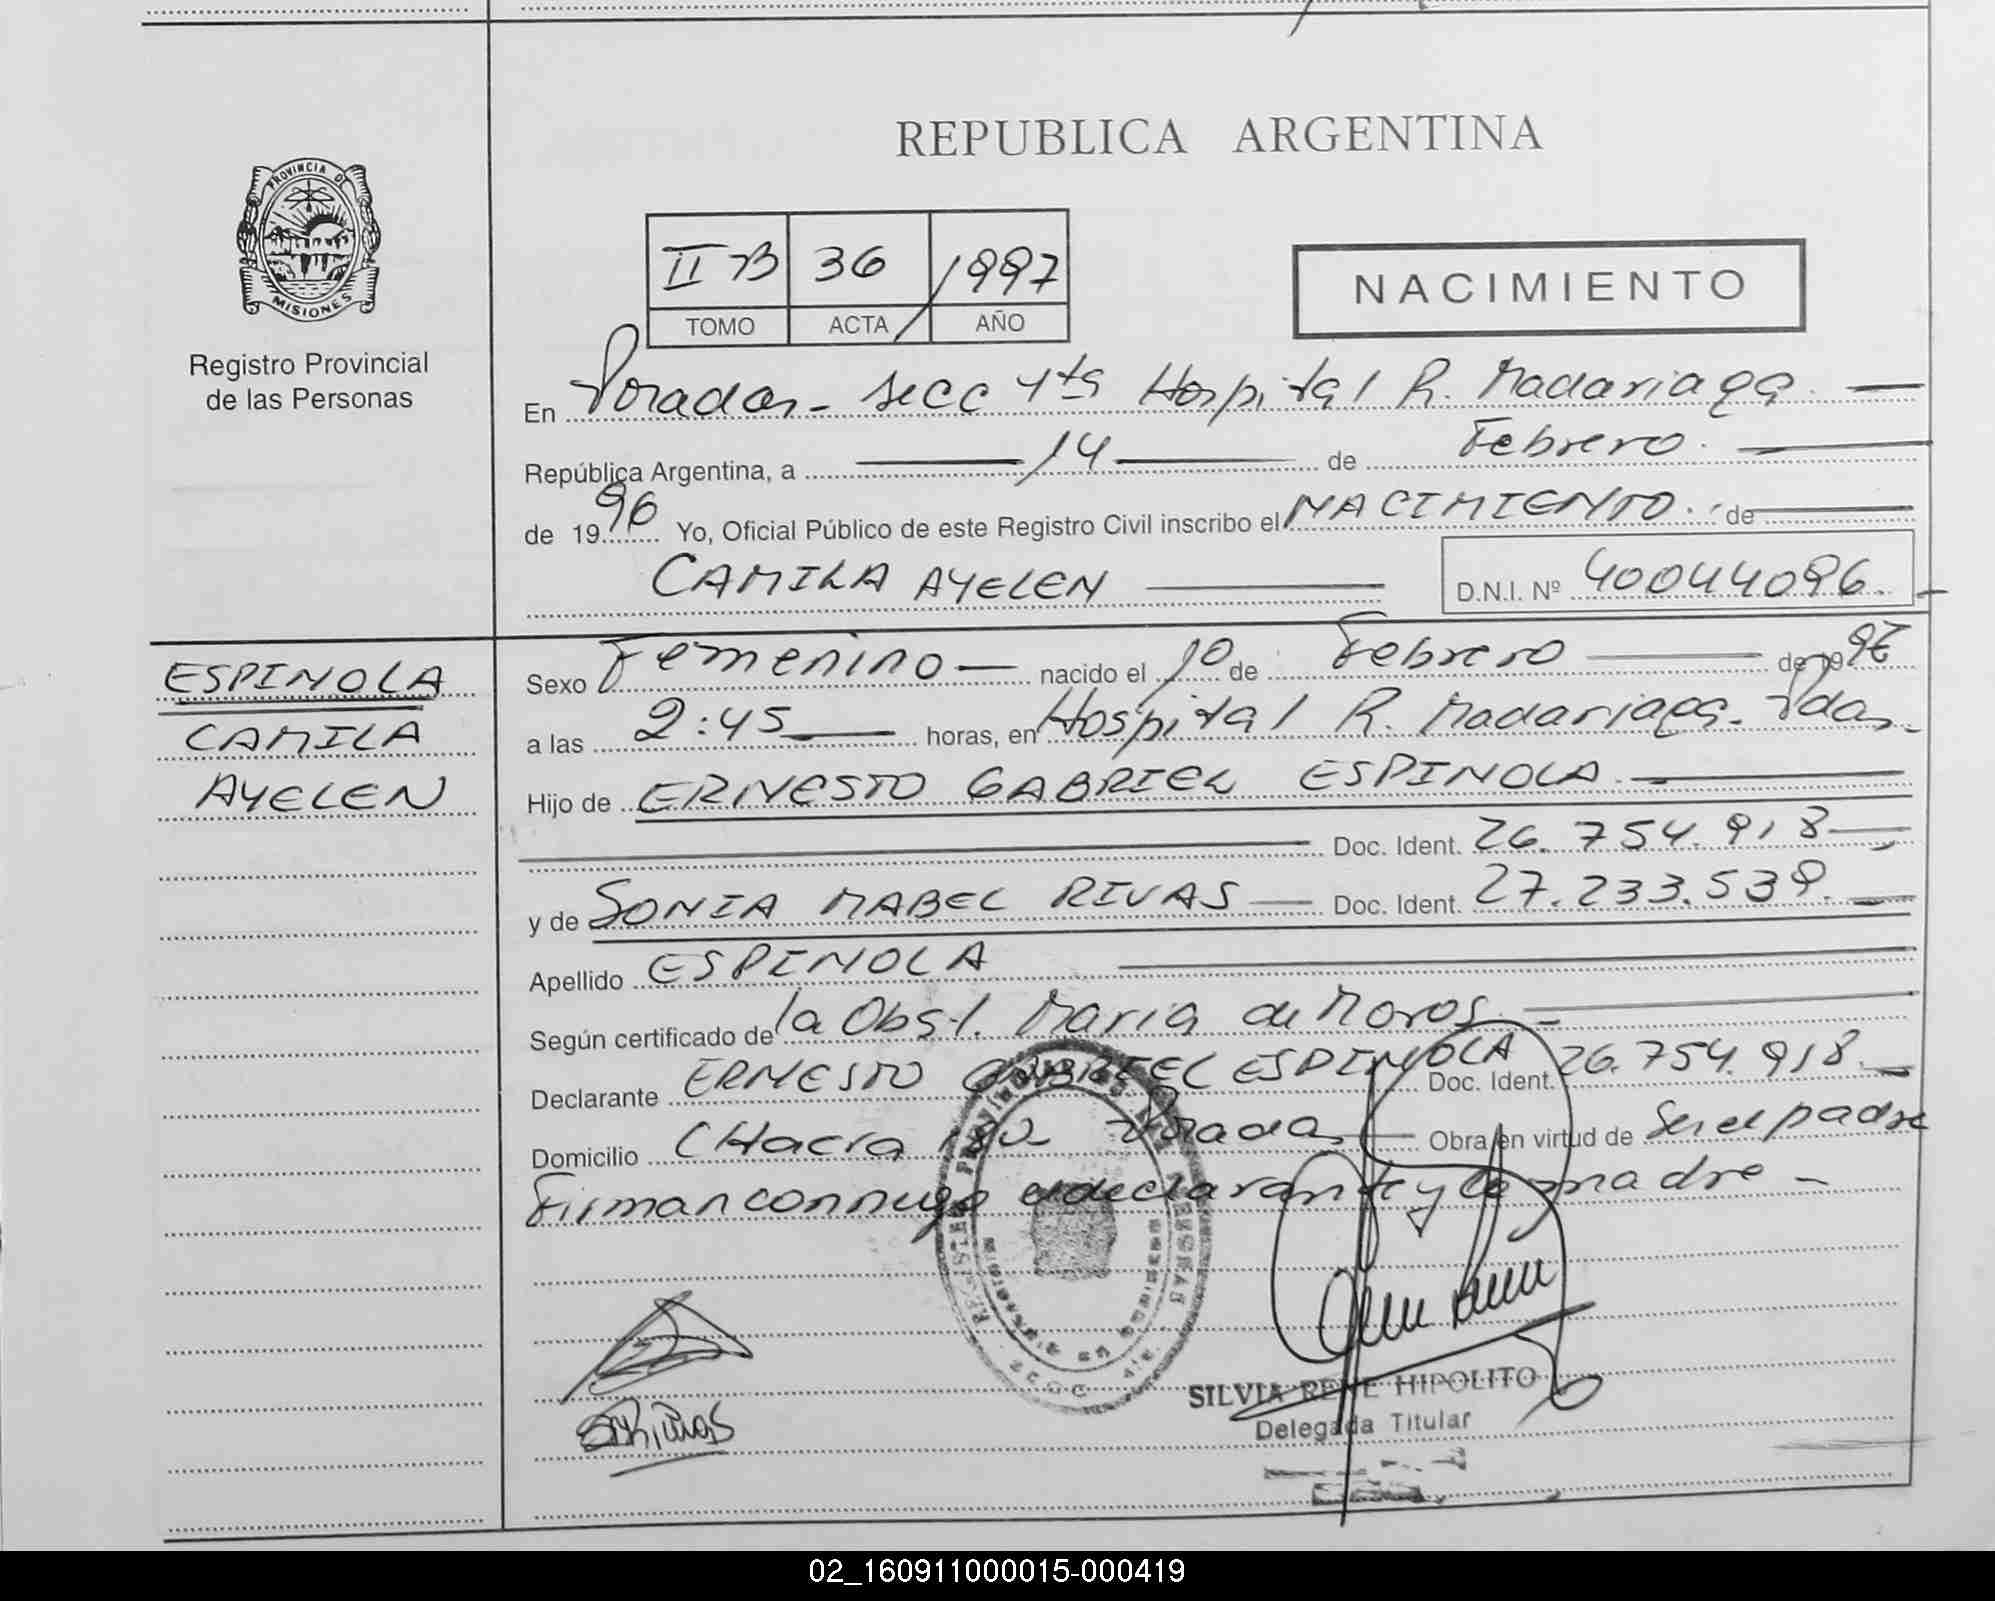 REPUBLICA ARGENTINA
PROVINCIA DE
MISIONES
Registro Provincial
de las Personas
II B 36 1997
TOMO ACTA AÑO
NACIMIENTO
En Posadas - secc 4ta Hospital R. Madariaga.
República Argentina, a 14 de Febrero.
de 1996 Yo, Oficial Público de este Registro Civil inscribo el NACIMIENTO. de
CAMILA AYELEN D.N.I. Nº 40044096.
ESPINOLA
CAMILA
AYELEN
Sexo Femenino nacido el 10 de Febrero de 199
a las 2:45 horas, en Hospital R. Madariaga. Pdas.
Hijo de ERNESTO GABRIEL ESPINOLA.
Doc. Ident. 26.754.918
y de SONIA MABEL RIVAS Doc. Ident. 27.233.539.
Apellido ESPINOLA
Según certificado de la Obst. Maria de Moros.
Declarante ERNESTO GABRIEL ESPINOLA Doc. Ident. 26.754.918.
Domicilio CHacra Posadas Obra en virtud de Ser el padre
Firman conmigo el declarante y la madre -
SRivas
SILVIA RENE HIPOLITO
Delegada Titular
02_160911000015-000419